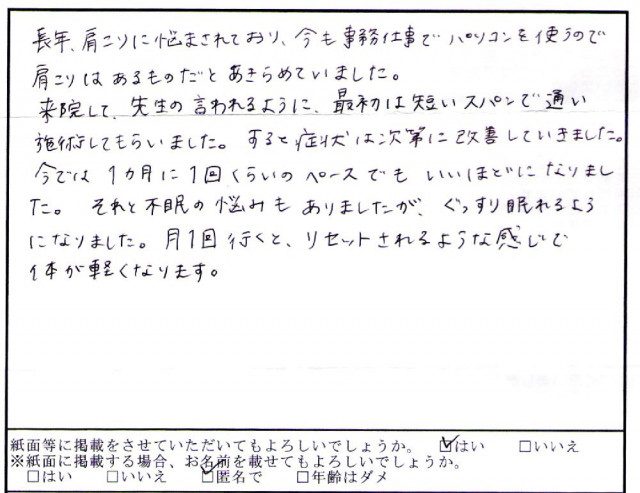 長年、肩こりに悩まされており、今も事務仕事でパソコンを使うので
肩こりはあるものだとあきらめていました。
来院して、先生の言われるように、最初は短いスパンで通い
施術してもらいました。すると症状は次第に改善していきました。
今では1カ月に1回くらいのペースでもいいほどになりまし
た。それと不眠の悩みもありましたが、ぐっすり眠れるよう
になりました。月1回行くと、リセットされるような感じで
体が軽くなります。
紙面等に掲載をさせていただいてもよろしいでしょうか。 ☑はい □いいえ
※紙面に掲載する場合、お名前を載せてもよろしいでしょうか。
□はい □いいえ ☑匿名で □年齢はダメ